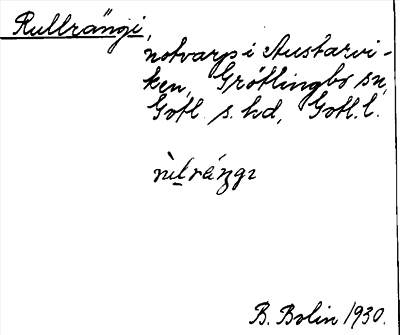 Rullrängi,
notvarp i Austarvi-
ken, Grötlingbo sn,
Gotl. s. hd, Gotl. l.
B. Bolin 1930.